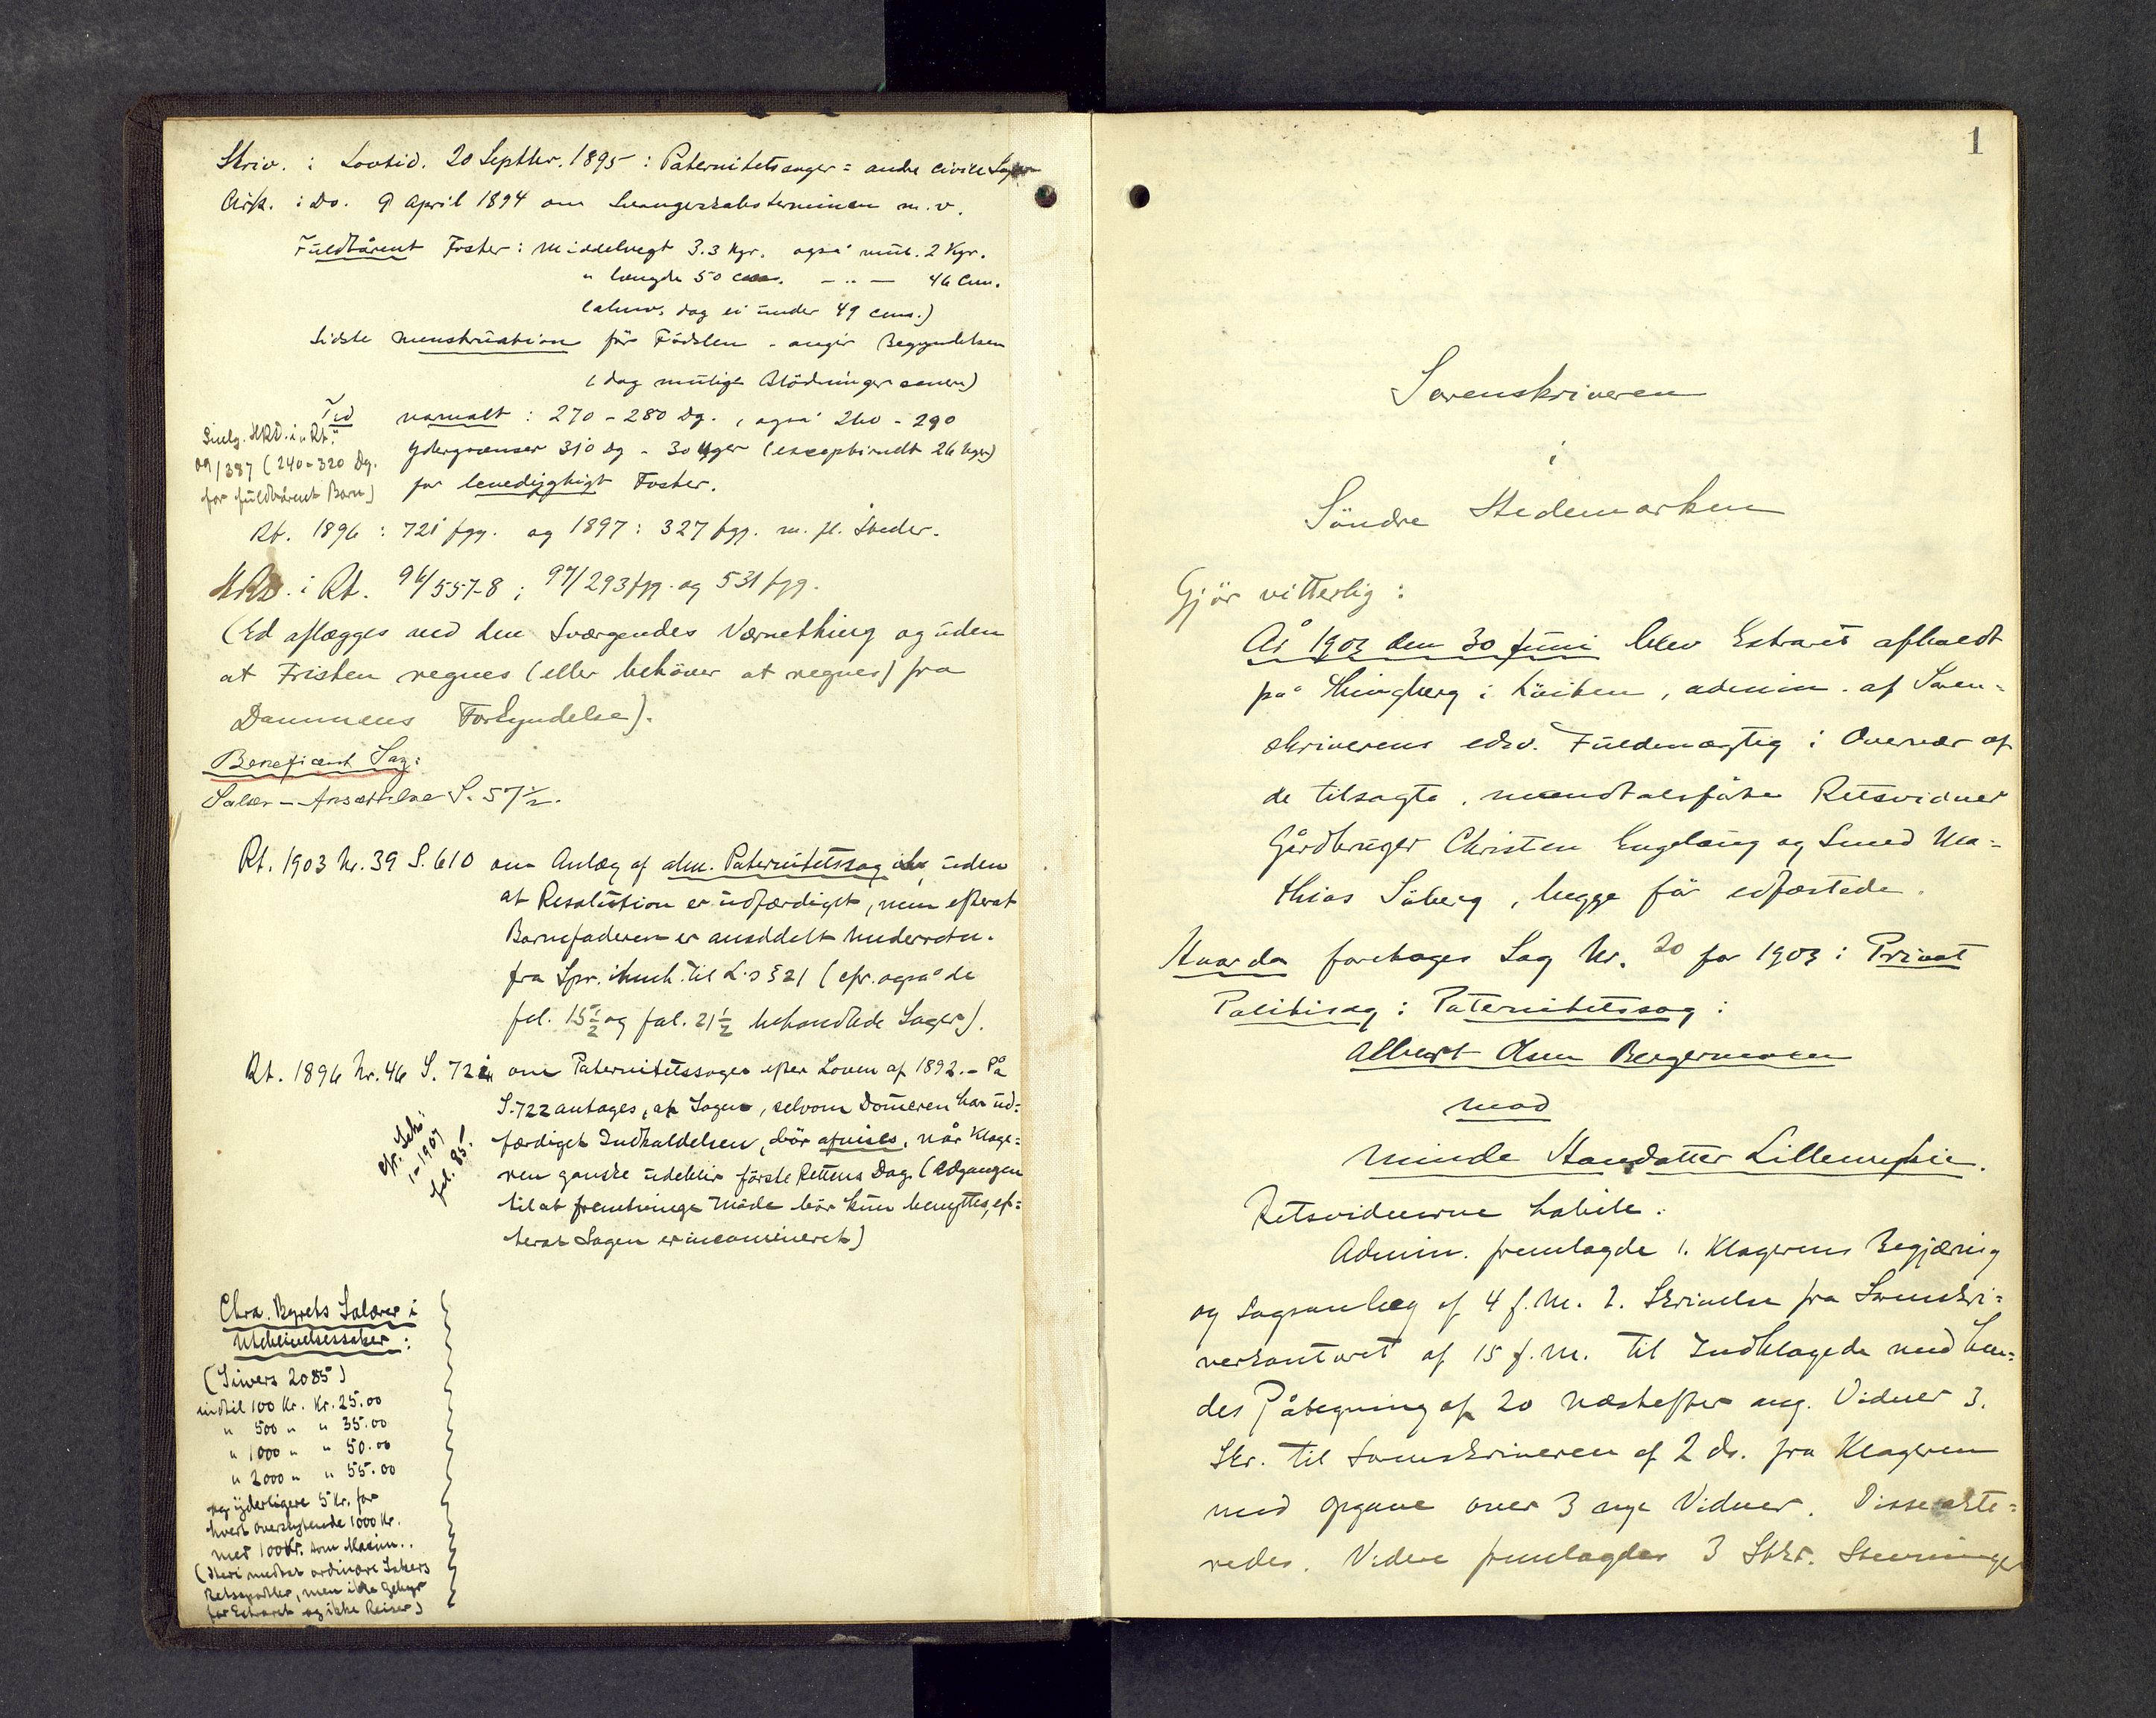 Skriv. i Lovtid. 20 Septbr. 1895: Paternitetssager = andre civile Sager
Cirk. i Do. 9 April 1894 om Svangerskabsterminen m. v.
Fuldbårent Foster: Middelvegt 3.3 Kgr. også mul. 2 Kgr.
" længde 50 cm. - " - 46 Cm.
(almv. dog ei under 49 cms.)
Sidste menstruation før Fødslen - angir Begyndelsen
(dog mulige Blödninger senere)
Tid normalt: 270 - 280 Dg., også 260 - 290
Ydergrænser 310 dg - 30 Uger (exceptionelt 26 Uger)
for levedygtigt Foster.
Smlg. HRD. i "Rt."
09/387 (240-320 Dg.
for fuldbårent Barn)
Rt. 1896: 721 fgg. og 1897: 327 fgg. m. fl. Steder.
HRD. i Rt. 96/557-8; 97/293 fgg. og 531 fgg.
(Ed aflægges ved den Sværgendes Værnething og uden
at Fristen regnes (eller behöver at regnes) fra
Dommens Forkyndelse).
Beneficeret Sag:
Salær-Ansættelse S. 57½.
Rt. 1903 Nr. 39 S. 610 om Anlæg af alm. Paternitetssag uden
at Resolution er udfærdiget, men efterat
Barnefaderen er meddelt Underretn.
fra Spr. i hend. til L.s § 21 (cfr. også de
fol. 15½ og fol. 21½ behandlede Sager).
Rt. 1896 Nr. 46 S. 721 om Paternitetssager efter Loven af 1892. - På
S. 722 antages, at Sagen, selvom Domeren har ud=
færdiget Indkaldelsen, bör afvises, når Klage=
ren ganske udebliver første Rettens Dag. (Adgangen
til at fremtvinge Möde bör kun benyttes, ef=
terat Sagen er incamineret)
cfr. Sak
1-1907
fol. 85!
Chra. Byrets Salærer i
Utebleivelsessaker:
(Siwers 2085)
indtil 100 Kr. Kr. 25.00
" 500 " " 35.00
" 1000 " " 50.00
" 2000 " " 55.00
og yderligere 5 Kr. for
hvert overskytende 1000 Kr.
med 100 Kr. som Maxim..
(Heri medtat ordinære Sakers
Retsgebyr, men ikke Gebyr
for Extraret og ikke Reiser)
1
Sorenskriveren
i
Söndre Hedemarken
Gjör vitterlig:
År 1903 den 30 Juni blev Extraret afholdt
på Thingberg i Löiten, admin. af Soren=
skriverens edsv. Fuldmægtig i Overvær af
de tilsagte, mandtalsførte Retsvidner
Gårdbruger Christen Engelaug og Smed Ma=
thias Söberg, begge för edfæstede.
Hvorda foretoges Sag Nr. 20 for 1903: Privat
Politisag: Paternitetssag:
Albert Olsen Bergermoen
mod
Minde Hansdatter Lillemysie.
Retsvidnerne habile.
Admin. fremlagde 1. Klagerens Begjæring
og Saganlæg af 4 f. M. 2. Skrivelse fra Sorenskri=
verkontoret af 15 f. M. til Indklagede med hen=
des Påtegning af 20 næstefter ang. Vidner 3.
Skr. til Sorenskriveren af 2 ds. fra Klageren
med Opgave over 3 nye Vidner. Disse akte=
redes. Videre fremlagdes 3 Stkr. Stevninger